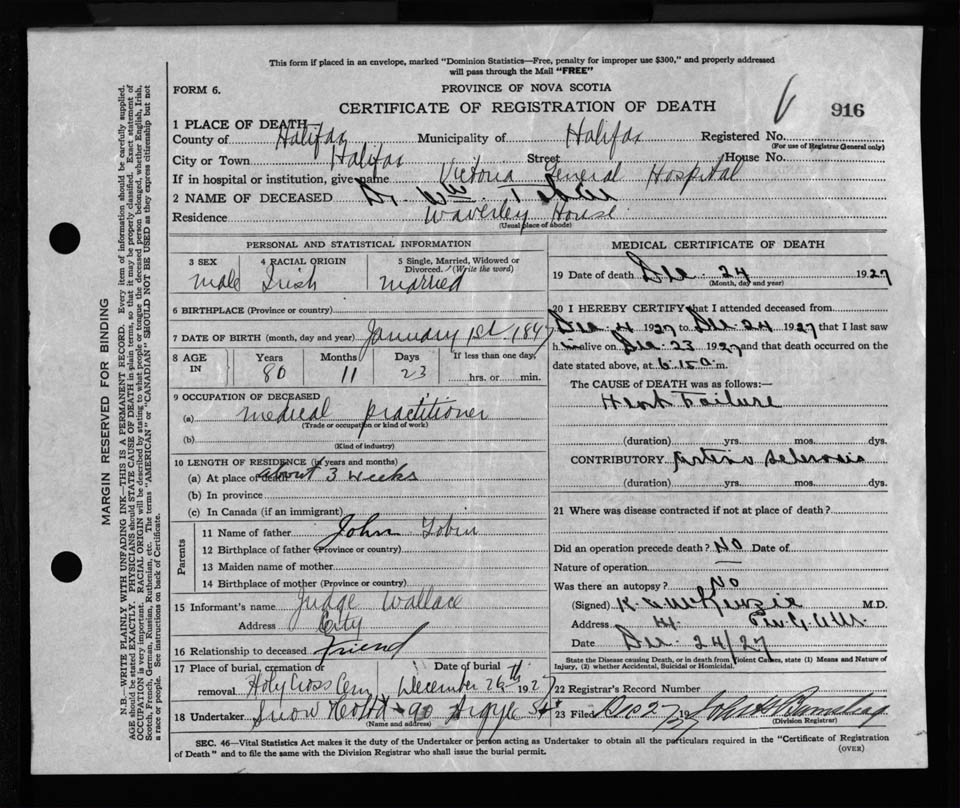 This form if placed in an envelope, marked "Dominion Statistics—Free, penalty for improper use $300," and properly addressed
will pass through the Mail "FREE"
FORM 6.
PROVINCE OF NOVA SCOTIA
CERTIFICATE OF REGISTRATION OF DEATH
6
916
1 PLACE OF DEATH—
County of Halifax Municipality of Halifax Registered No.
(For use of Registrar General only)
City or Town Halifax Street House No.
If in hospital or institution, give name Victoria General Hospital
2 NAME OF DECEASED Dr Wm. Tobin
Residence Waverley House
(Usual place of abode)
PERSONAL AND STATISTICAL INFORMATION
3 SEX
4 RACIAL ORIGIN
5 Single, Married, Widowed or Divorced. (Write the word)
Male Irish Married
6 BIRTHPLACE (Province or country)
7 DATE OF BIRTH (month, day and year) January 1st 1847
8 AGE IN Years Months Days If less than one day,
80 11 23 hrs. or min.
9 OCCUPATION OF DECEASED
(a) medical practitioner
(Trade or occupation or kind of work)
(b)
(Kind of industry)
10 LENGTH OF RESIDENCE (in years and months)
(a) At place of death about 3 weeks
(b) In province
(c) In Canada (if an immigrant)
Parents
11 Name of father John Tobin
12 Birthplace of father (Province or country)
13 Maiden name of mother
14 Birthplace of mother (Province or country)
15 Informant's name Judge Wallace
Address City
16 Relationship to deceased Friend
17 Place of burial, cremation or removal Holy Cross Cem Date of burial December 26th 1927
18 Undertaker Snow & Co Ltd - 90 Argyle St
(Name and address)
MEDICAL CERTIFICATE OF DEATH
19 Date of death Dec. 24 1927
(Month, day and year)
20 I HEREBY CERTIFY that I attended deceased from
Dec 4 1927 to Dec. 24 1927 that I last saw
him alive on Dec. 23 1927 and that death occurred on the
date stated above, at 6.15 a. m.
The CAUSE of DEATH was as follows:—
Heart Failure
(duration) yrs. mos. dys.
CONTRIBUTORY Arterio sclerosis
(duration) yrs. mos. dys.
21 Where was disease contracted if not at place of death?
Did an operation precede death? No Date of
Nature of operation
Was there an autopsy? No
(Signed) K. McKenzie M.D.
Address
Date Dec. 24/27
State the Disease causing Death, or in death from Violent Causes, state (1) Means and Nature of
Injury, (2) whether Accidental, Suicidal or Homicidal.
22 Registrar's Record Number
23 Filed Dec 27 19
(Division Registrar)
SEC. 46—Vital Statistics Act makes it the duty of the Undertaker or person acting as Undertaker to obtain all the particulars required in the "Certificate of Registration
of Death" and to file the same with the Division Registrar who shall issue the burial permit.
(OVER)
MARGIN RESERVED FOR BINDING
N.B.—WRITE PLAINLY WITH UNFADING INK—THIS IS A PERMANENT RECORD. Every item of information should be carefully supplied.
AGE should be stated EXACTLY. PHYSICIANS should STATE CAUSE OF DEATH in plain terms, so that it may be properly classified. Exact statement of
OCCUPATION is very important. RACIAL ORIGIN will be described by stating to what people or tongue the deceased person belonged, whether English, Irish,
Scotch, French, German, Russian, Ruthenian, etc. The terms "AMERICAN" or "CANADIAN" SHOULD NOT BE USED as they express citizenship but not
a race or people. See instructions on back of Certificate.